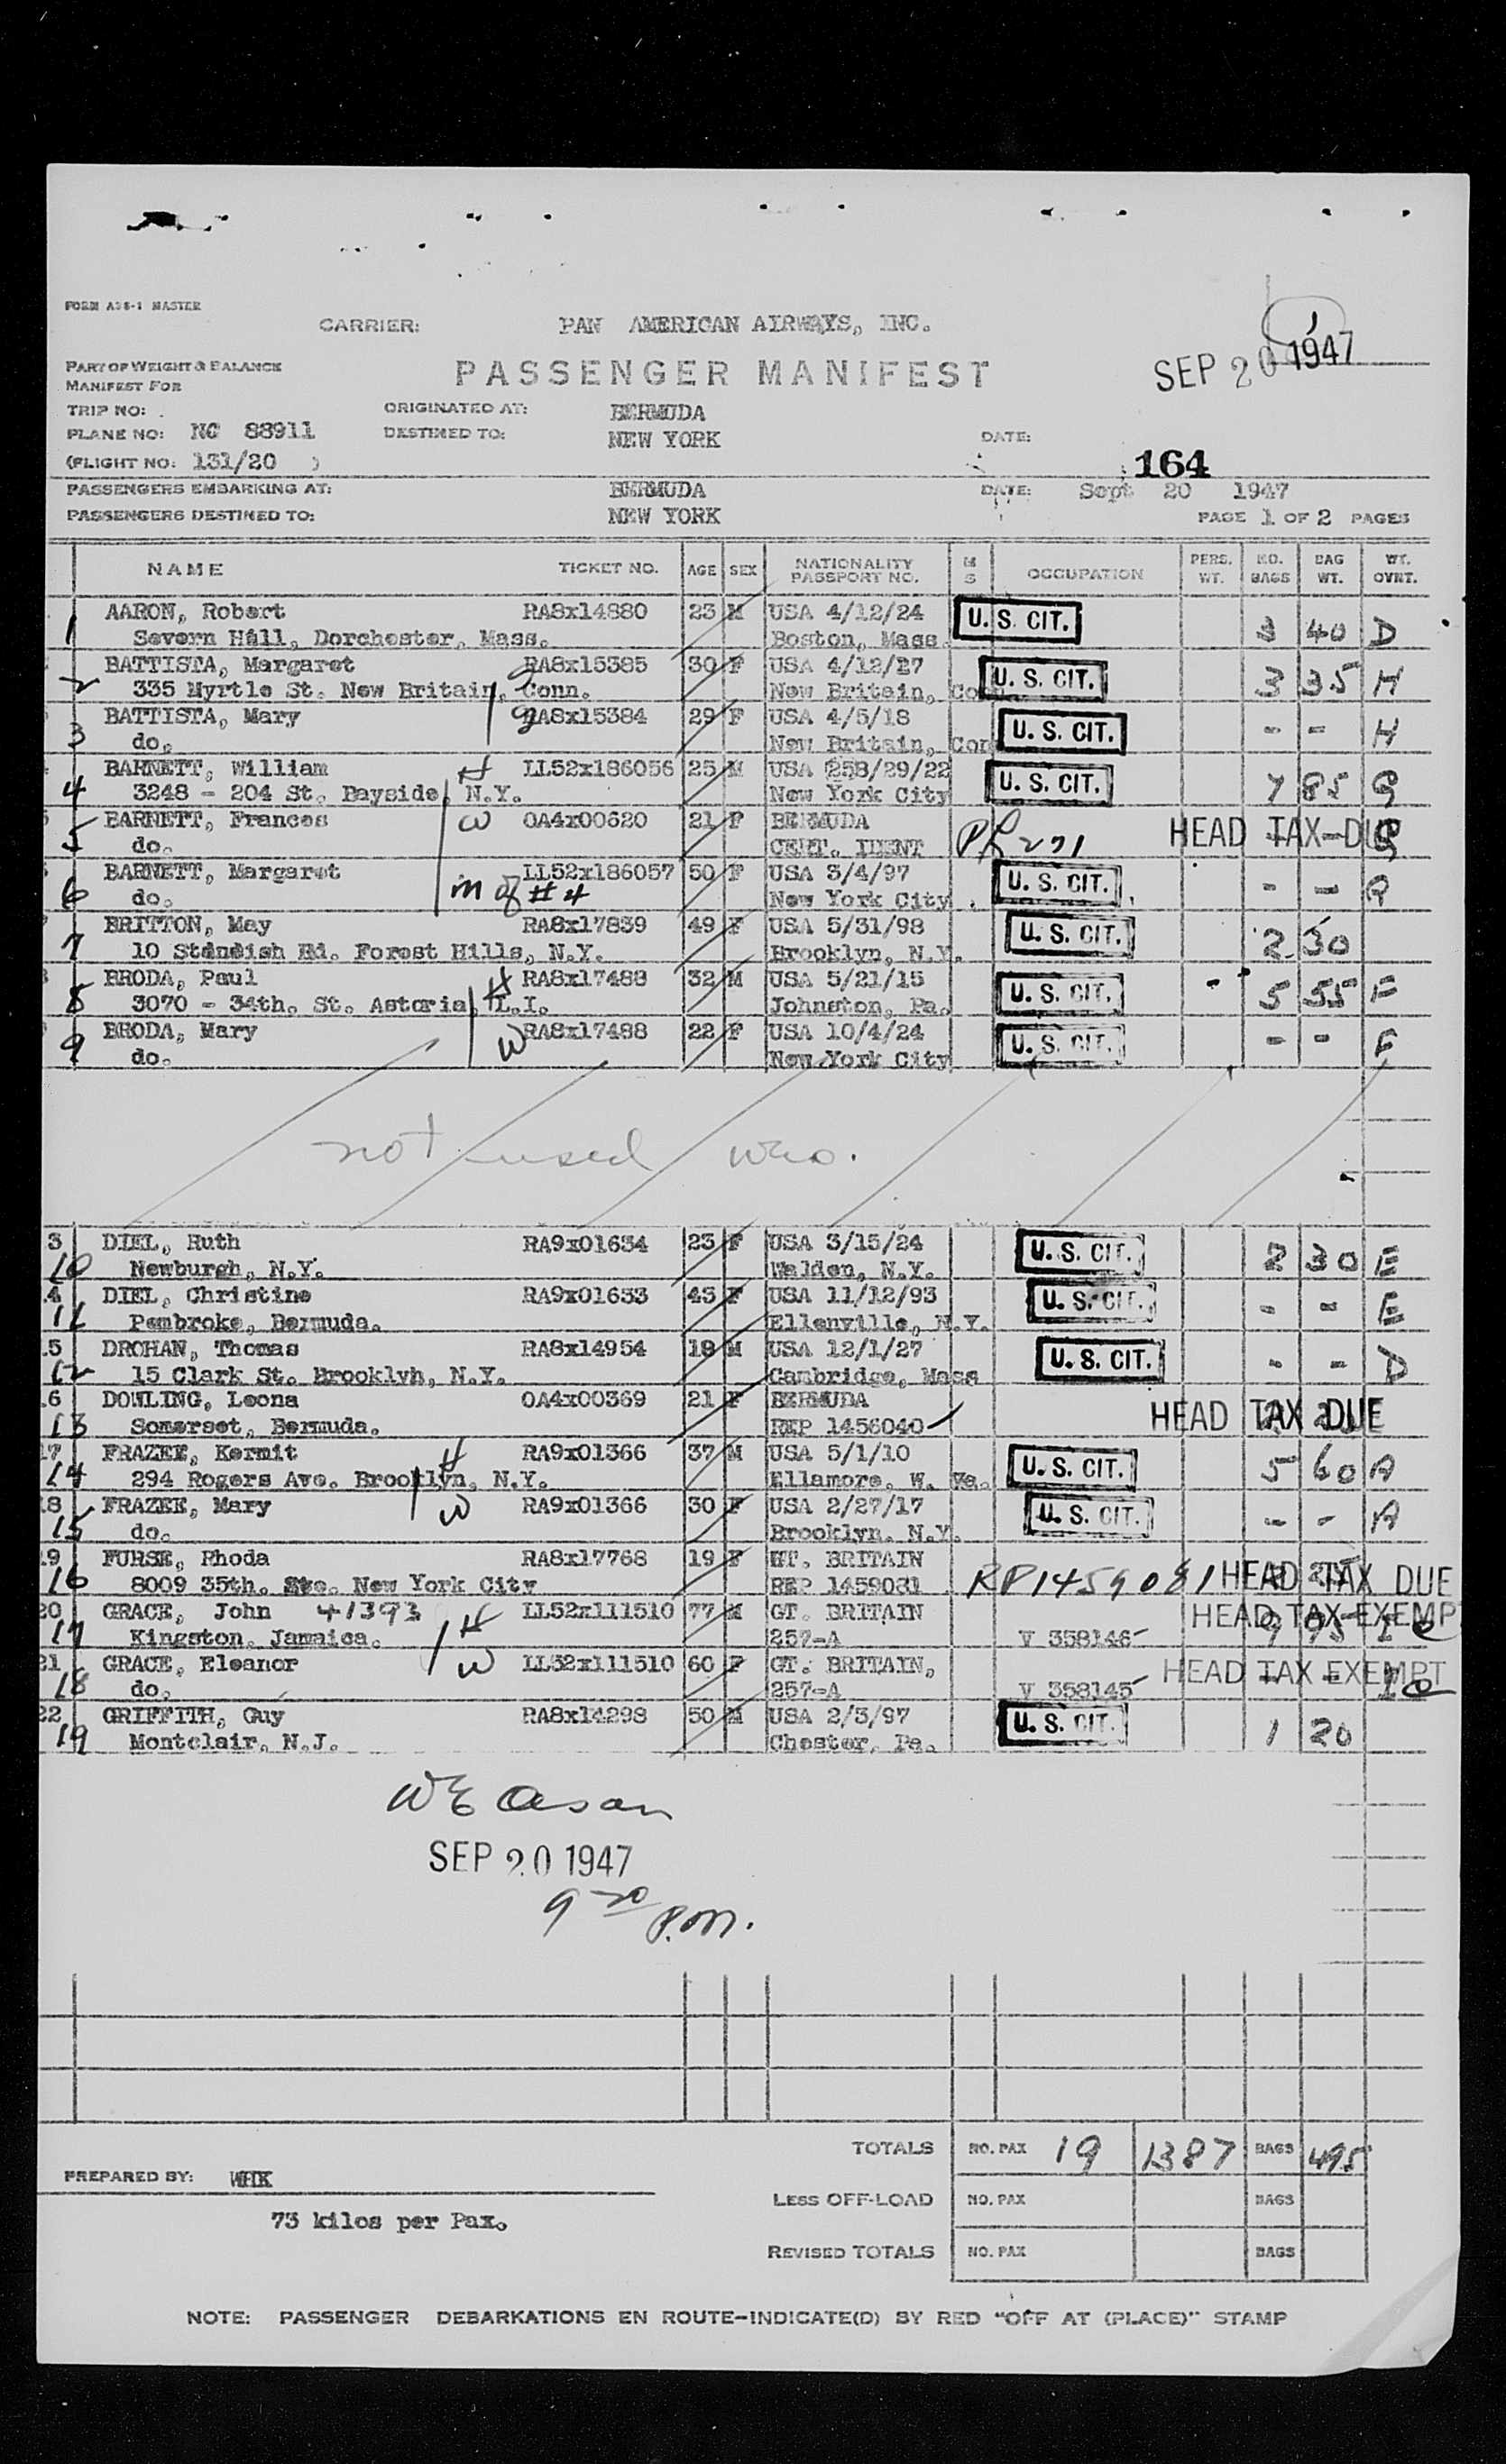 FORM A36-1 MASTER
CARRIER: PAN AMERICAN AIRWAYS, INC.
1
PART OF WEIGHT & BALANCE
MANIFEST FOR
PASSENGER MANIFEST
SEP 20 1947
TRIP NO: ORIGINATED AT: BERMUDA
PLANE NO: NC 88911 DESTINED TO: NEW YORK DATE:
(FLIGHT NO: 131/20 ) 164
PASSENGERS EMBARKING AT: BERMUDA DATE: Sept 20 1947
PASSENGERS DESTINED TO: NEW YORK PAGE 1 OF 2 PAGES
NAME TICKET NO. AGE SEX NATIONALITY PASSPORT NO. M S OCCUPATION PERS. WT. NO. BAGS BAG WT. WT. OVNT.
AARON, Robert RA8x14880 23 M USA 4/12/24 U. S. CIT.
1 Severn Hall, Dorchester, Mass. Boston, Mass. 3 40 D
BATTISTA, Margaret RA8x15385 30 F USA 4/12/17 U. S. CIT.
2 335 Myrtle St. New Britain, Conn. New Britain, Co 3 35 H
BATTISTA, Mary RA8x15384 29 F USA 4/5/18 U. S. CIT.
3 do. New Britain, Con - - H
BARNETT, William H LL52x186056 25 M USA 8/29/22 U. S. CIT.
4 3248 - 204 St. Bayside, N.Y. New York City 7 85 G
BARNETT, Frances W OA4x00620 21 F BERMUDA HEAD TAX DUE
5 do. CERT. IDENT - - G
BARNETT, Margaret LL52x186057 50 F USA 3/4/97 U. S. CIT.
6 do. m of #4 New York City - - G
BRITTON, May RA8x17839 49 F USA 5/31/98 U. S. CIT.
7 10 Standish Rd. Forest Hills, N.Y. Brooklyn, N.Y. 2 30
BRODA, Paul H RA8x17488 32 M USA 5/21/15 U. S. CIT.
8 3070 - 34th. St. Astoria, L.I. Johnston, Pa. 5 55 F
BRODA, Mary W RA8x17488 22 F USA 10/4/24 U. S. CIT.
9 do. New York City - - F
not used
3 DIEL, Ruth RA9x01634 23 F USA 3/15/24 U. S. CIT.
10 Newburgh, N.Y. Walden, N.Y. 2 30 E
4 DIEL, Christine RA9x01633 43 F USA 11/12/93 U. S. CIT.
11 Pembroke, Bermuda. Ellenville, N.Y. - - E
5 DROHAN, Thomas RA8x14954 19 M USA 12/1/27 U. S. CIT.
12 15 Clark St. Brooklyn, N.Y. Cambridge, Mass - - D
6 DOWLING, Leona OA4x00369 21 F BERMUDA HEAD TAX DUE
13 Somerset, Bermuda. REP 1456040
17 FRAZEE, Kermit H RA9x01366 37 M USA 5/1/10 U. S. CIT.
14 294 Rogers Ave. Brooklyn, N.Y. Ellamore, W. Va. 5 60 A
8 FRAZEE, Mary W RA9x01366 30 F USA 2/27/17 U. S. CIT.
15 do. Brooklyn, N.Y. - - A
9 FURSE, Rhoda RA8x17768 19 F GT. BRITAIN
16 8009 35th. Ave. New York City REP 1459081 RP1459081 HEAD TAX DUE
20 GRACE, John 41393 H LL52x111510 77 M GT. BRITAIN HEAD TAX EXEMP
17 Kingston, Jamaica. 257-A V 358146
21 GRACE, Eleanor W LL52x111510 60 F GT. BRITAIN, HEAD TAX EXEMPT
18 do. 257-A V 358145
22 GRIFFITH, Guy RA8x14298 50 M USA 2/3/97 U. S. CIT.
19 Montclair, N.J. Chester, Pa. 1 20
SEP 20 1947
9 30
P.M.
TOTALS NO. PAX 19 1387 BAGS 495
PREPARED BY: WHK
LESS OFF-LOAD NO. PAX BAGS
73 kilos per Pax.
REVISED TOTALS NO. PAX BAGS
NOTE: PASSENGER DEBARKATIONS EN ROUTE-INDICATE(D) BY RED "OFF AT (PLACE)" STAMP